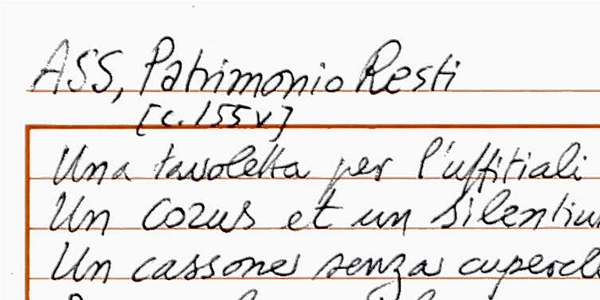 ASS, Patrimonio Resti
[c. 155v]
Una tavoletta per l'uffitiali
Un cozus et un silentiu
Un cassone senza